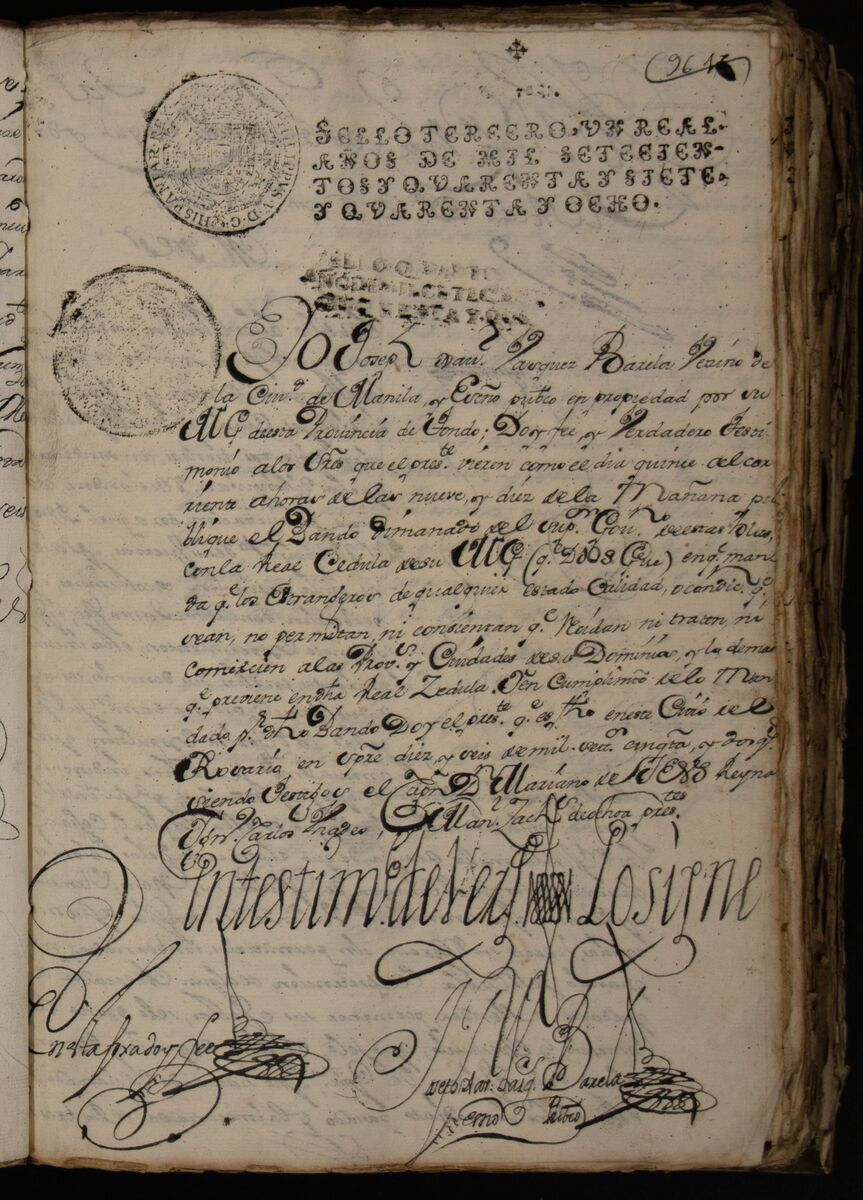 (964)
PHILIPPVS V D G HISPANIAR
SELLO TERCERO, VN REAL.
AÑOS DE MIL SETECIEN-
TOS Y QVARENTA Y SIETE,
Y QVARENTA Y OCHO.
SELLO QVARTO
AÑO DE MIL SETECIEN
CINQVENTA Y DOS
Joseph Xavr. Vasquez Barela Vezino de
la Ciud. de Manila, y Essno ppco en propiedad por su
Mg desta Provincia de Tondo; Doy fee, y Verdadero Testi
monio a los Sres que el preste. vieren como el dia quinse del cor
riente ahoras de las nueve, y diez de la Mañana pu
blique el Bando dimanado del Supr. Govno. de estas Yslas,
con la Real Cedula de su Mg (qe. Dios Gde) en q. man
da q. los Estrangeros de qualquier estado Calidad, o condic. q.
sean, no permitan, ni consientan qe. Recidan ni traten, ni
comercien a las Provs. y Ciudades de su Dominia, y lo demas
qe. previene en dha Real Zedula. Y en Cumplimto de lo Man
dado pr. dho Bando Doy el preste. q. es fho en este Citio de el
Rosario en Septre diez, y seis de mil. setts. cinqta, y dos as.
siendo Testigos el Capn. Dn. Mariano de los Reyes
Dn. Carlos, y Manl. presttes
En testimo. de Verd. Lo signe
En esta firado y fee
Joseph Xavr. Vasqs. Barela
Essno Publico